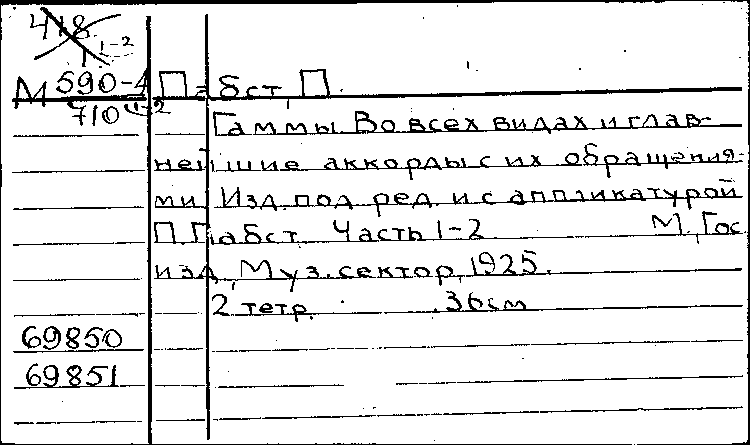 418
1 1-2
М 590-1 Пабст, П.
710 1-2
Гаммы во всех видах и глав-
нейшие аккорды с их обращения-
ми. Изд. под ред. и с аппликатурой
П. Пабст. Часть 1-2 М., Гос
изд., Муз. сектор, 1925.
2 тетр. 36см
69850
69851